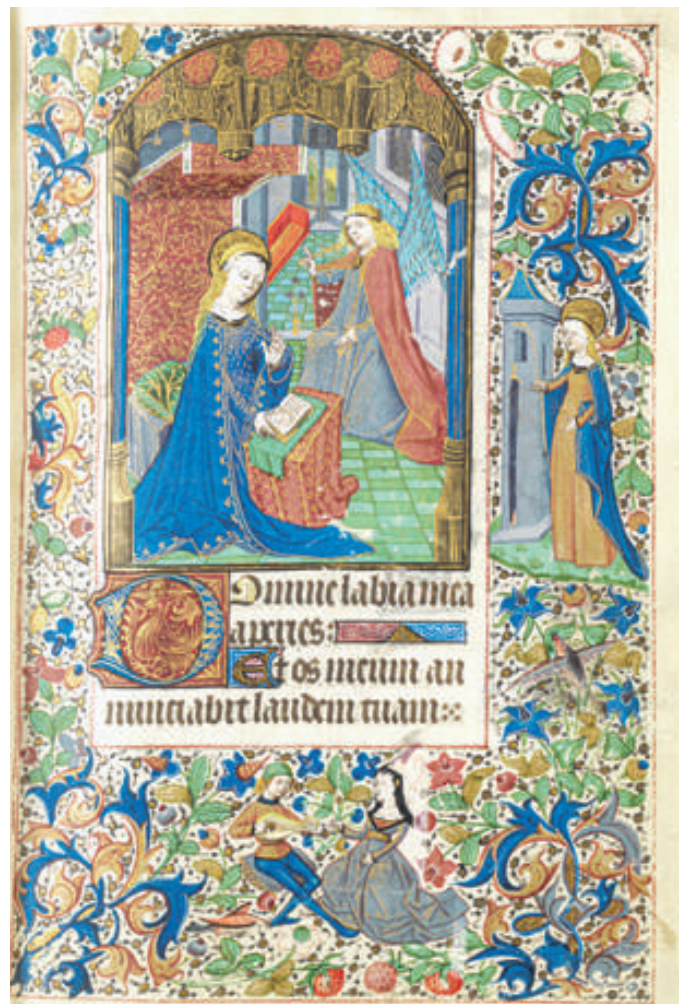 Domine labia mea
aperies:
Et os meum an
nunciabit laudem tuam: